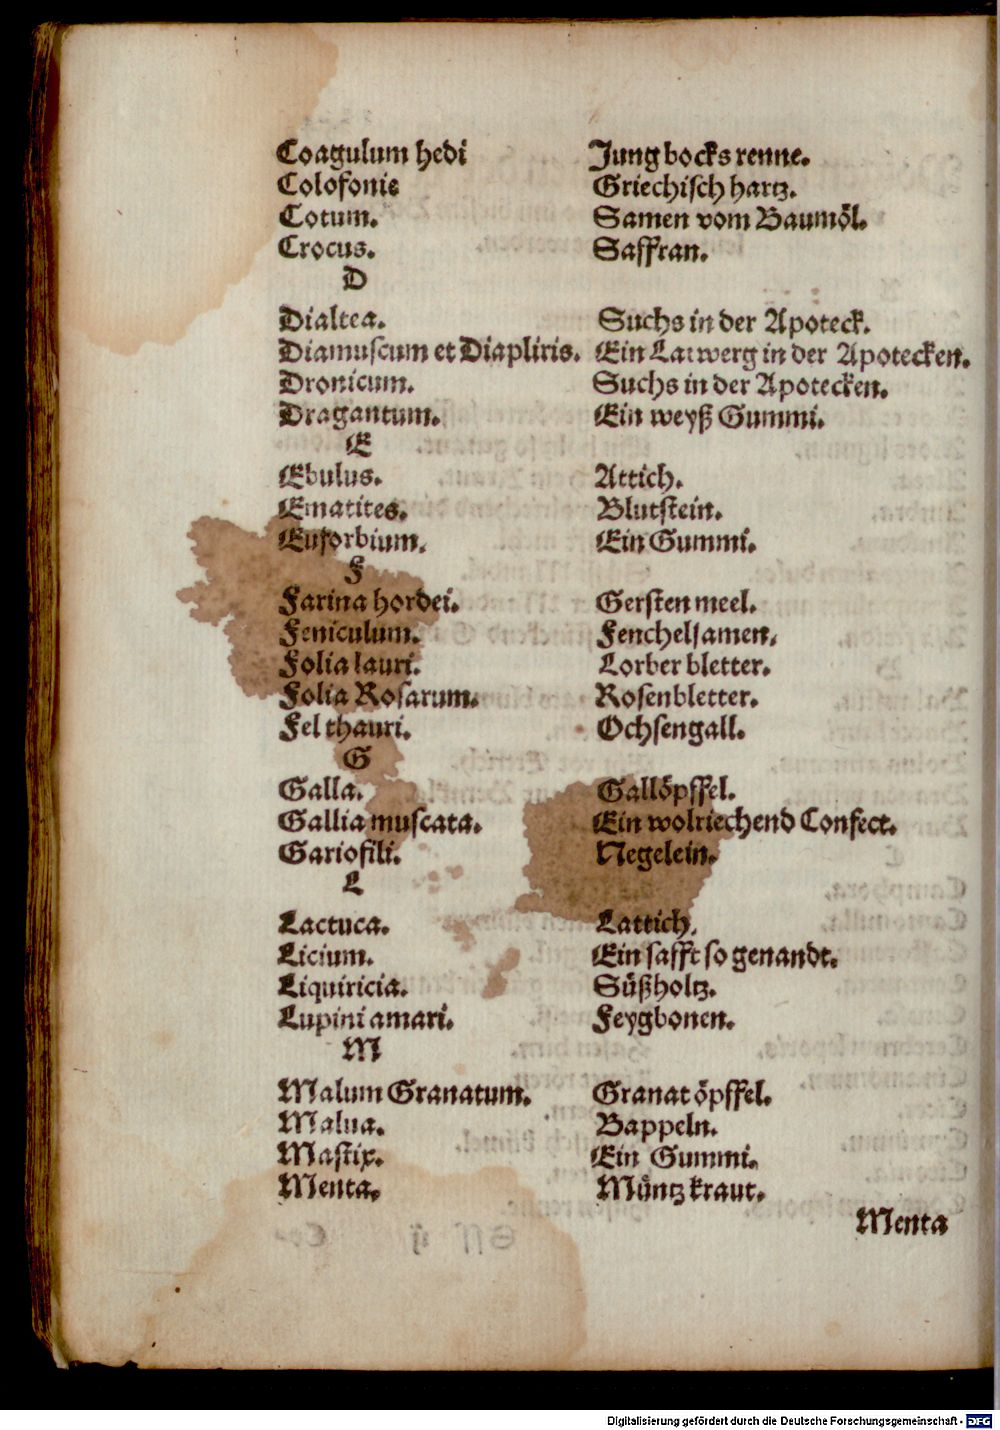 Coagulum hedi Jung bocks renne.
Colofonie Griechisch hartz.
Cotum. Samen vom Baumöl.
Crocus. Saffran.
D
Dialtea. Suchs in der Apoteck.
Diamuscum et Diapliris. Ein Latwerg in der Apotecken.
Dronicum. Suchs in der Apotecken.
Dragantum. Ein weyß Gummi.
E
Ebulus. Attich.
Ematites. Blutstein.
Euforbium. Ein Gummi.
F
Farina hordei. Gersten meel.
Feniculum. Fenchelsamen.
Folia lauri. Lorber bletter.
Folia Rosarum. Rosenbletter.
Fel thauri. Ochsengall.
G
Galla. Gallöpffel.
Gallia muscata. Ein wolriechend Confect.
Gariofili. Negelein.
L
Lactuca. Lattich.
Licium. Ein safft so genandt.
Liquiricia. Süßholtz.
Lupini amari. Feygbonen.
M
Malum Granatum. Granat öpffel.
Malua. Bappeln.
Mastix. Ein Gummi.
Menta. Müntz kraut.
Menta
Digitalisierung gefördert durch die Deutsche Forschungsgemeinschaft - DFG